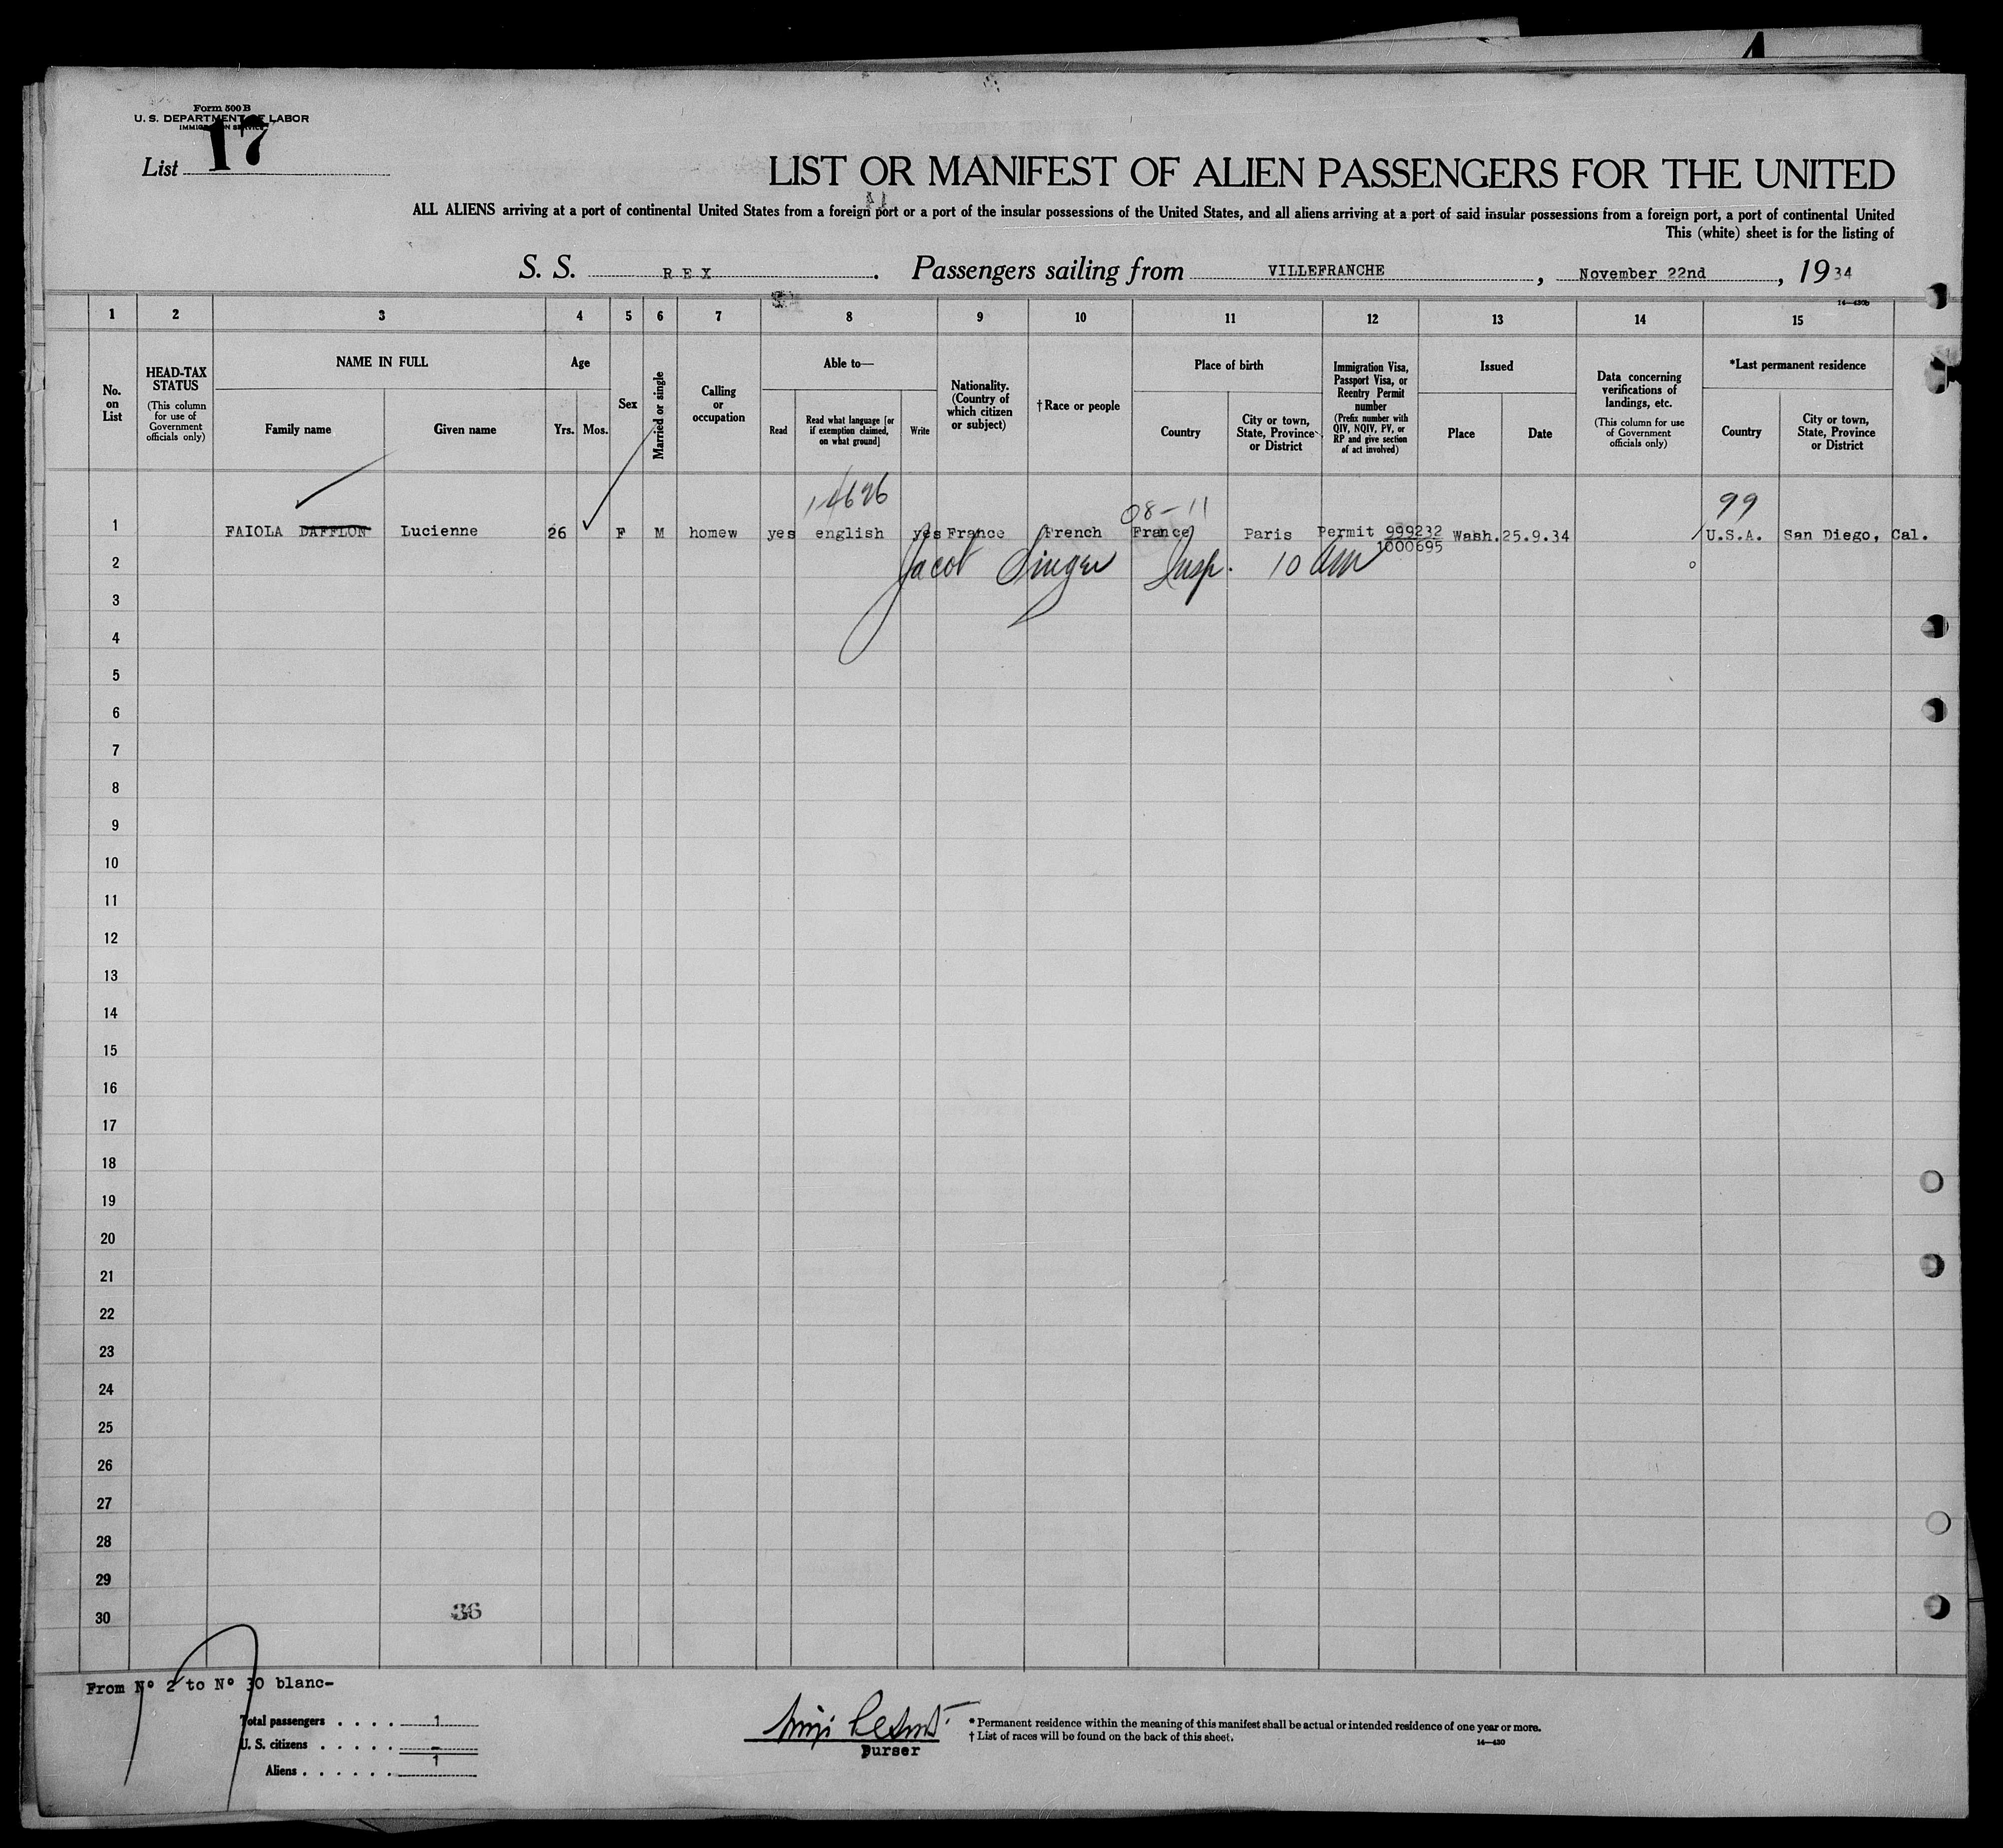 Form 500 B
U. S. DEPARTMENT OF LABOR
IMMIGRATION SERVICE
List 17
LIST OR MANIFEST OF ALIEN PASSENGERS FOR THE UNITED
ALL ALIENS arriving at a port of continental United States from a foreign port or a port of the insular possessions of the United States, and all aliens arriving at a port of said insular possessions from a foreign port, a port of continental United
This (white) sheet is for the listing of
S. S. REX. Passengers sailing from VILLEFRANCHE, November 22nd, 1934
14—430b
1 2 3 4 5 6 7 8 9 10 11 12 13 14 15
No. on List
HEAD-TAX STATUS
(This column for use of Government officials only)
NAME IN FULL
Family name
Given name
Age
Yrs. Mos.
Sex
Married or single
Calling or occupation
Able to—
Read
Read what language [or if exemption claimed, on what ground]
Write
Nationality. (Country of which citizen or subject)
†Race or people
Place of birth
Country
City or town, State, Province or District
Immigration Visa, Passport Visa, or Reentry Permit number
(Prefix number with QIV, NQIV, PV, or RP and give section of act involved)
Issued
Place
Date
Data concerning verifications of landings, etc.
(This column for use of Government officials only)
*Last permanent residence
Country
City or town, State, Province or District
14626 08-11 99
1 FAIOLA DAFFLON Lucienne 26 F M homew yes english yes France French France Paris Permit 999232 Wash. 25.9.34 U.S.A. San Diego, Cal.
1000695
2 Jacob Singer Insp. 10 am
3
4
5
6
7
8
9
10
11
12
13
14
15
16
17
18
19
20
21
22
23
24
25
26
27
28
29
30
36
From Nº 2 to Nº 30 blanc-
Total passengers . . . . 1
U. S. citizens . . . . . -
Aliens . . . . . . 1
Purser
* Permanent residence within the meaning of this manifest shall be actual or intended residence of one year or more.
† List of races will be found on the back of this sheet.
14—430